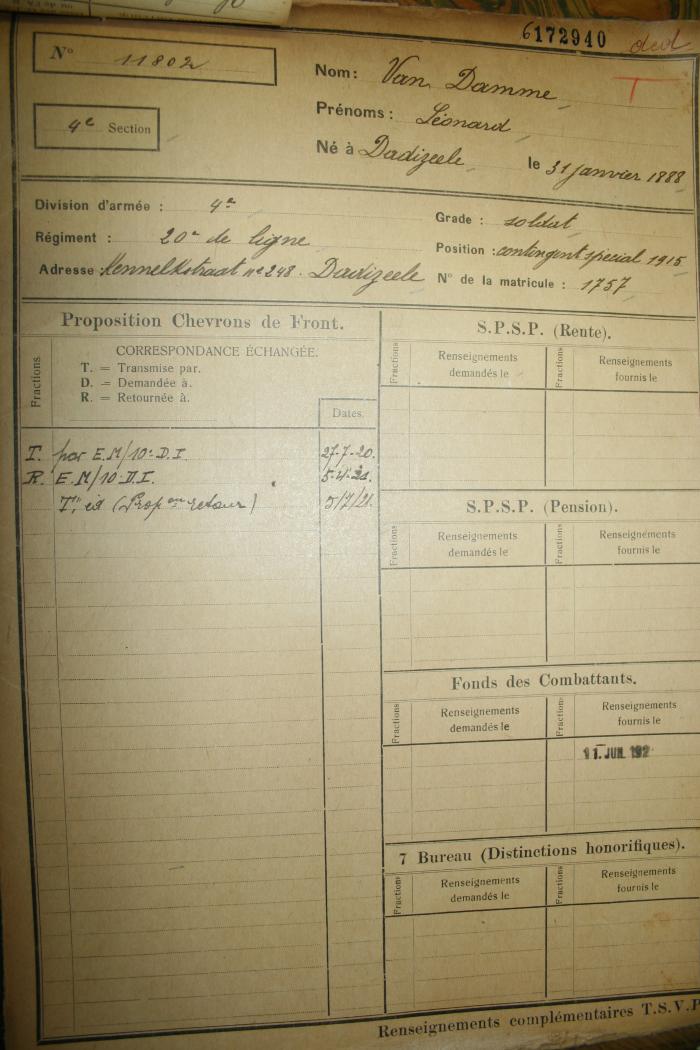 6172940
ded
T
N° 11802
4e Section
Nom: Van Damme
Prénoms: Léonard
Né à Dadizeele le 31 janvier 1888
Division d'armée : 4e
Régiment : 20e de ligne
Adresse : n° 248. Dadizeele
Grade : soldat
Position : contingent spécial 1915
N° de la matricule : 1757
Proposition Chevrons de Front.
Fractions
CORRESPONDANCE ÉCHANGÉE.
T. = Transmise par.
D. = Demandée à.
R. = Retournée à.
Dates.
T. par E.M/10e D.I 27-7-20.
R. E.M/10 D.I. 5-4-21.
(Prop on retour) 5/7/21.
S.P.S.P. (Rente).
Fractions
Renseignements
demandés le
Fractions
Renseignements
fournis le
S.P.S.P. (Pension).
Fractions
Renseignements
demandés le
Fractions
Renseignements
fournis le
Fonds des Combattants.
Fractions
Renseignements
demandés le
Fractions
Renseignements
fournis le
11. JUIL 192
7 Bureau (Distinctions honorifiques).
Fractions
Renseignements
demandés le
Fractions
Renseignements
fournis le
Renseignements complémentaires T.S.V.P